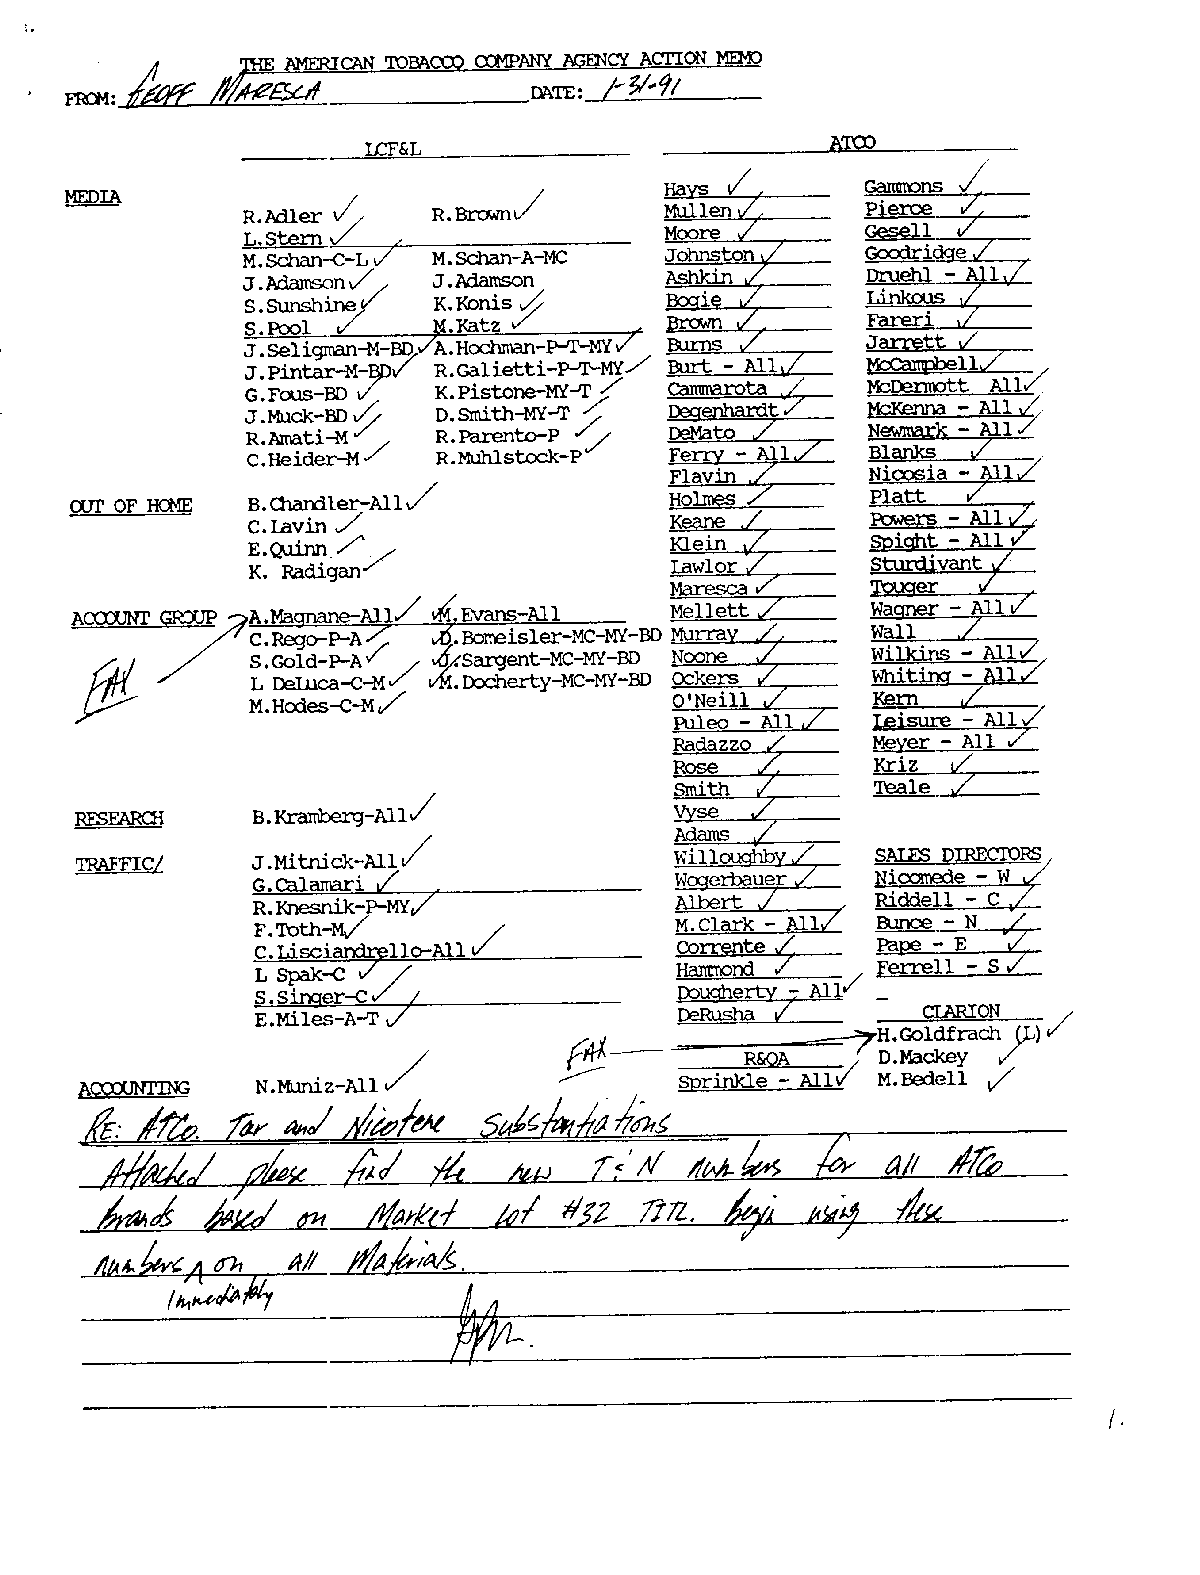 THE AMERICAN TOBACCO COMPANY AGENCY ACTION MEMO
FROM: GEOFF MARESCA DATE: 1-31-91
LCF&L
MEDIA
R.Adler ✓ R.Brown ✓
L.Stern ✓
M.Schan-C-L ✓ M.Schan-A-MC
J.Adamson ✓ J.Adamson
S.Sunshine ✓ K.Konis ✓
S.Pool ✓ M.Katz ✓
J.Seligman-M-BD ✓ A.Hochman-P-T-MY ✓
J.Pintar-M-BD ✓ R.Galietti-P-T-MY ✓
G.Fous-BD ✓ K.Pistone-MY-T ✓
J.Muck-BD ✓ D.Smith-MY-T ✓
R.Amati-M ✓ R.Parento-P ✓
C.Heider-M ✓ R.Muhlstock-P ✓
OUT OF HOME B.Chandler-All ✓
C.Lavin ✓
E.Quinn ✓
K. Radigan ✓
ACCOUNT GROUP A.Magnane-All ✓ ✓ M.Evans-All
C.Rego-P-A ✓ ✓ D.Bomeisler-MC-MY-BD
S.Gold-P-A ✓ ✓ J.Sargent-MC-MY-BD
FAX
L DeLuca-C-M ✓ ✓ M.Docherty-MC-MY-BD
M.Hodes-C-M ✓
RESEARCH B.Kramberg-All ✓
TRAFFIC/ J.Mitnick-All ✓
G.Calamari ✓
R.Knesnik-P-MY ✓
F.Toth-M ✓
C.Lisciandrello-All ✓
L Spak-C ✓
S.Singer-C ✓
E.Miles-A-T ✓
ACCOUNTING N.Muniz-All ✓
ATCO
Hays ✓
Mullen ✓
Moore ✓
Johnston ✓
Ashkin ✓
Bogie ✓
Brown ✓
Burns ✓
Burt - All ✓
Cammarota ✓
Degenhardt ✓
DeMato ✓
Ferry - All ✓
Flavin ✓
Holmes ✓
Keane ✓
Klein ✓
Lawlor ✓
Maresca ✓
Mellett ✓
Murray ✓
Noone ✓
Ockers ✓
O'Neill ✓
Puleo - All ✓
Radazzo ✓
Rose ✓
Smith ✓
Vyse ✓
Adams ✓
Willoughby ✓
Wogerbauer ✓
Albert ✓
M.Clark - All ✓
Corrente ✓
Hammond ✓
Dougherty - All ✓
DeRusha ✓
R&QA
Sprinkle - All ✓
Gammons ✓
Pierce ✓
Gesell ✓
Goodridge ✓
Druehl - All ✓
Linkous ✓
Fareri ✓
Jarrett ✓
McCampbell ✓
McDermott All ✓
McKenna - All ✓
Newmark - All ✓
Blanks ✓
Nicosia - All ✓
Platt ✓
Powers - All ✓
Spight - All ✓
Sturdivant ✓
Touger ✓
Wagner - All ✓
Wall ✓
Wilkins - All ✓
Whiting - All ✓
Kern ✓
Leisure - All ✓
Meyer - All ✓
Kriz ✓
Teale ✓
SALES DIRECTORS
Nicomede - W ✓
Riddell - C ✓
Bunce - N ✓
Pape - E ✓
Ferrell - S ✓
CLARION
FAX
H.Goldfrach (L) ✓
D.Mackey ✓
M.Bedell ✓
RE: ATCo. Tar and Nicotene Substantiations
Attached please find the new T&N numbers for all ATCo
brands based on Market Lot #32 TITL. Begin using these
numbers ^ on all Materials.
Immediately
1.